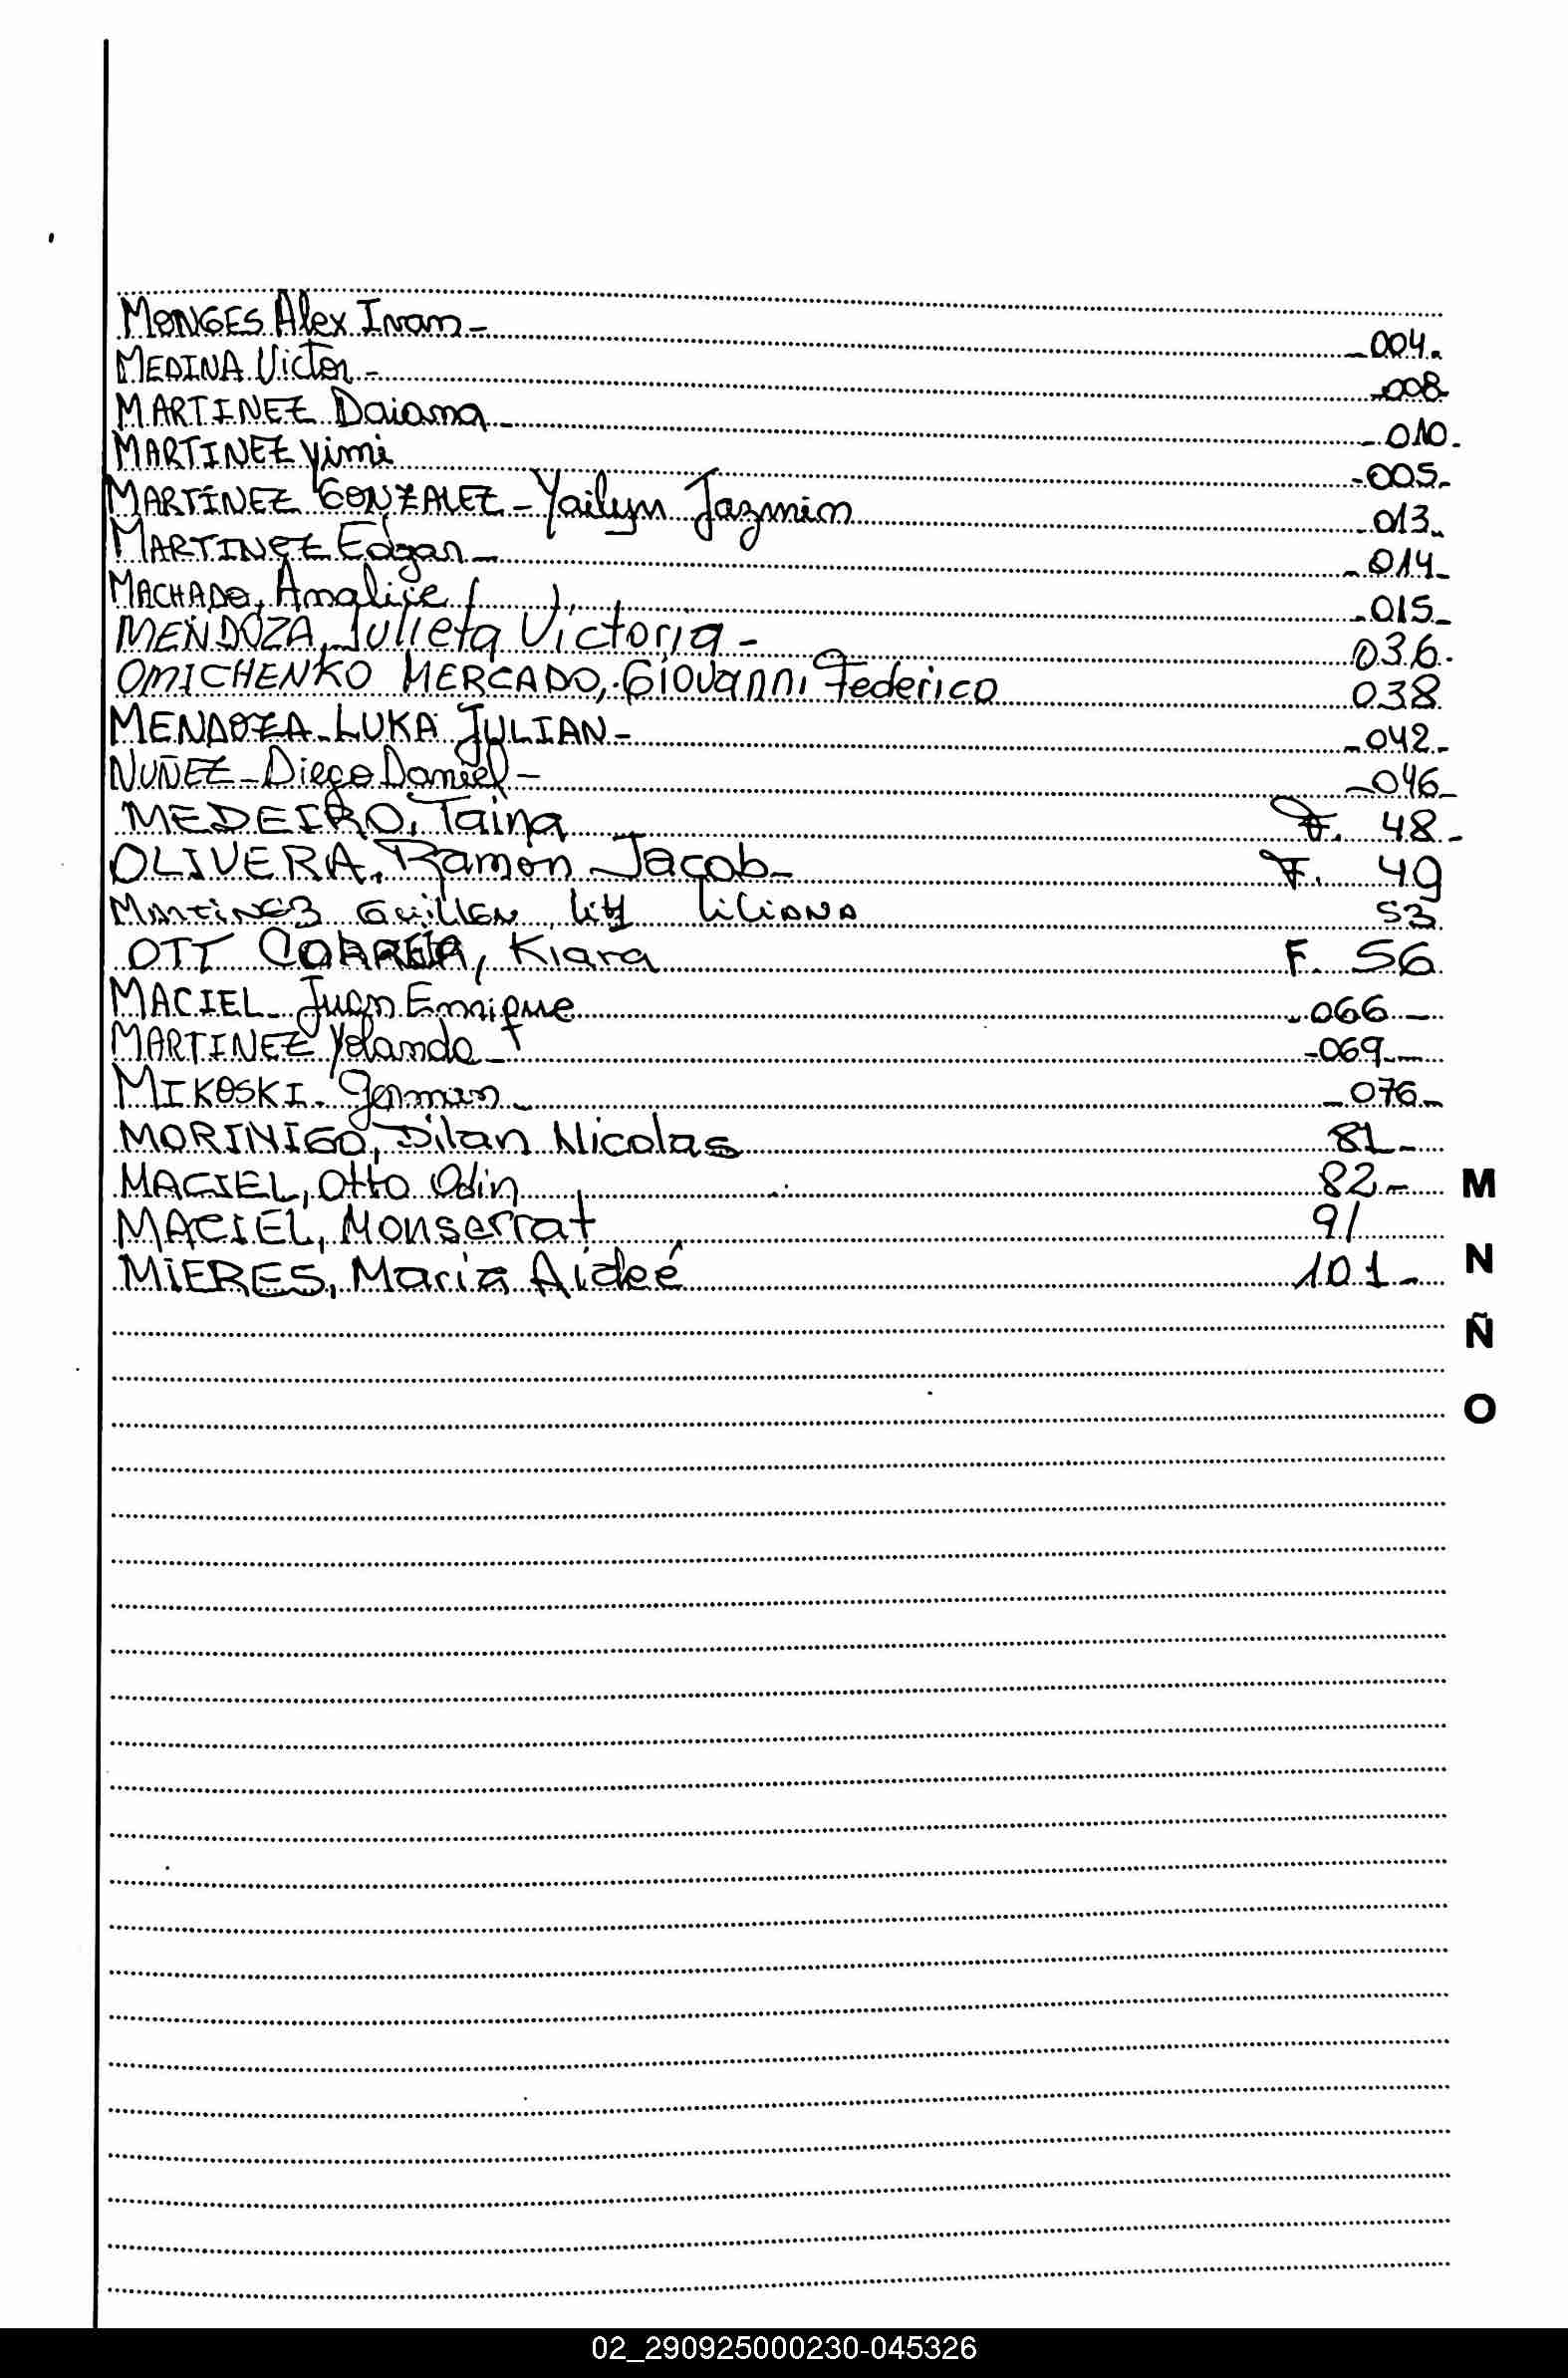 MONGES Alex Ivan - - 004.
MEDINA Victor - - 008-
MARTINEZ Daiana - - 010.
MARTINEZ Yimi - 005-
MARTÍNEZ GONZALEZ - Yailyn Jazmin - 013-
MARTINEZ Edgar - - 014-
MACHADO, Analise - 015-
MENDOZA, Julieta Victoria - 036.
OMICHENKO MERCADO, Giovanni Federico 038
MENDOZA - LUKA JULIAN - - 042-
NUÑEZ - Diego Daniel - - 046-
MEDEIRO, Taina F. 48-
OLIVERA, Ramon Jacob - F. 49
MARTINEZ Guillen Liz Liliana 53
OTT CORREIA, Kiara F. 56
MACIEL - Juan Enrique - 066-
MARTINEZ Yolanda - - 069-
MIKOSKI - German - - 076-
MORINIGO, Dilan Nicolas 81-
MACIEL, Otto Odin 82-
MACIEL, Monserrat 91
MIERES, Maria Aideé 101-
M
N
Ñ
O
02_290925000230-045326